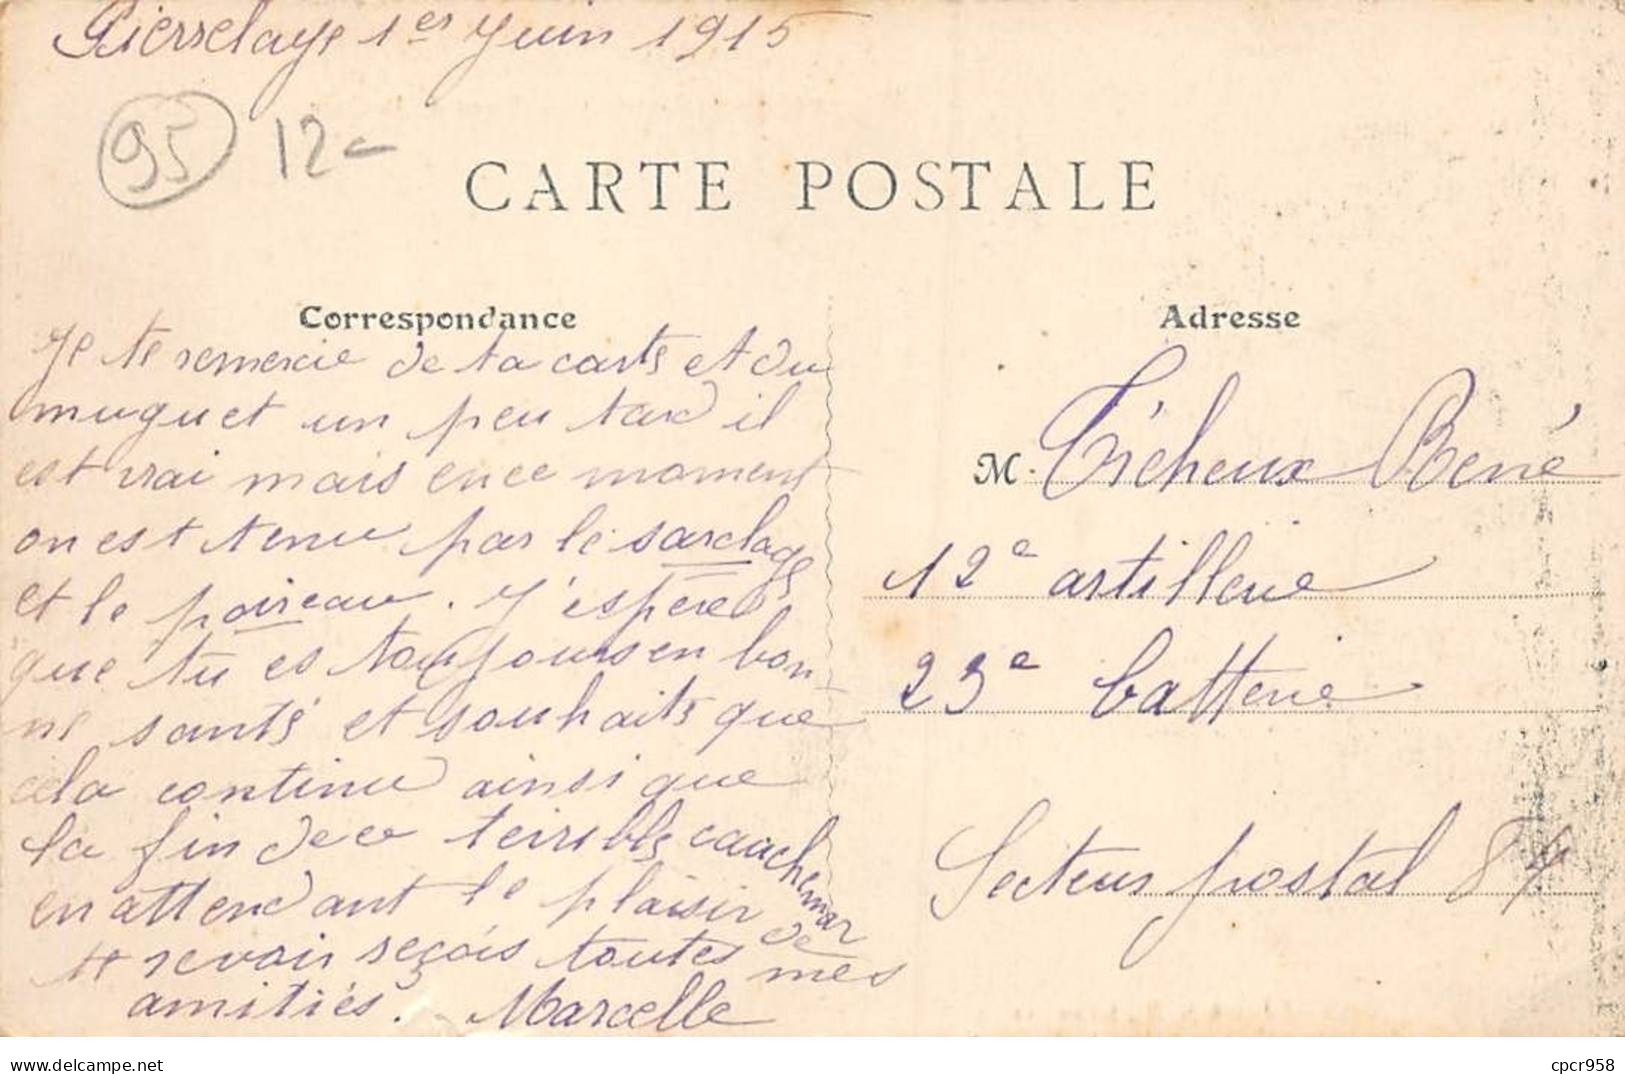 Pierrelaye 1er Juin 1915
95 12-
CARTE POSTALE
Correspondance
Je te remercie de ta carte et du
muguet un peu tard il
est vrai mais en ce moment
on est tenu par le sarclage
et le poireau. J'espère
que tu es toujours en bon-
ne santé et souhaite que
cela continue ainsi que
la fin de ce terrible cauchemar
en attendant le plaisir de
te revoir reçois toutes mes
amitiés. Marcelle
Adresse
M. Ticheux René
12e artillerie
23e batterie
Secteur postal 84
delcampe.net
cpcr958